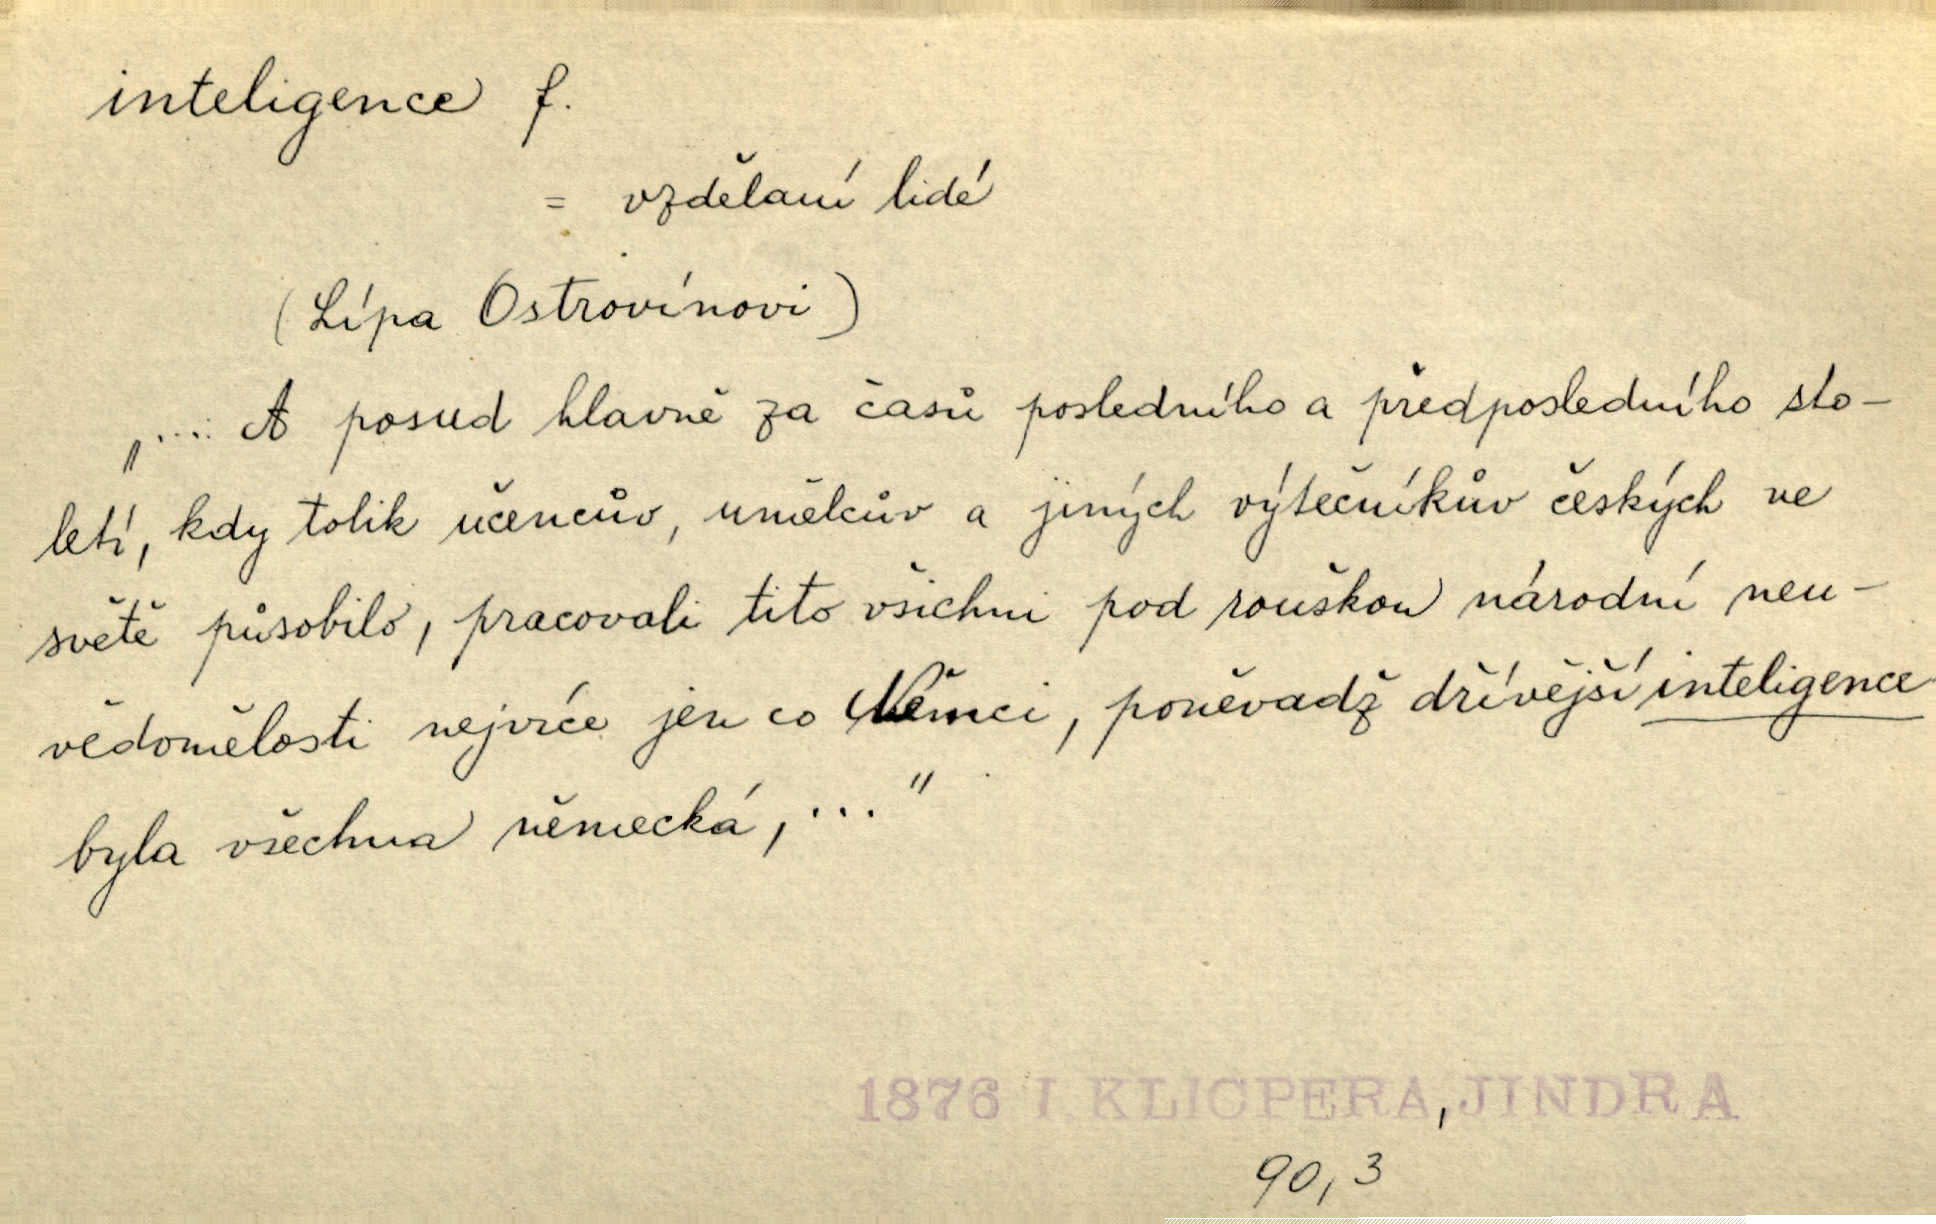 inteligence f.
= vzdělaní lidé
(Lípa Ostrovínovi)
„... A posud hlavně za časů posledního a předposledního sto-
letí, kdy tolik učencův, umělcův a jiných výtečníkův českých ve
světě působilo, pracovali tito všichni pod rouškou národní neu-
vědomělosti nejvíce jen co Němci, poněvadž dřívější inteligence
byla všechna německá, ..."
1876 I. KLICPERA, JINDRA
90, 3